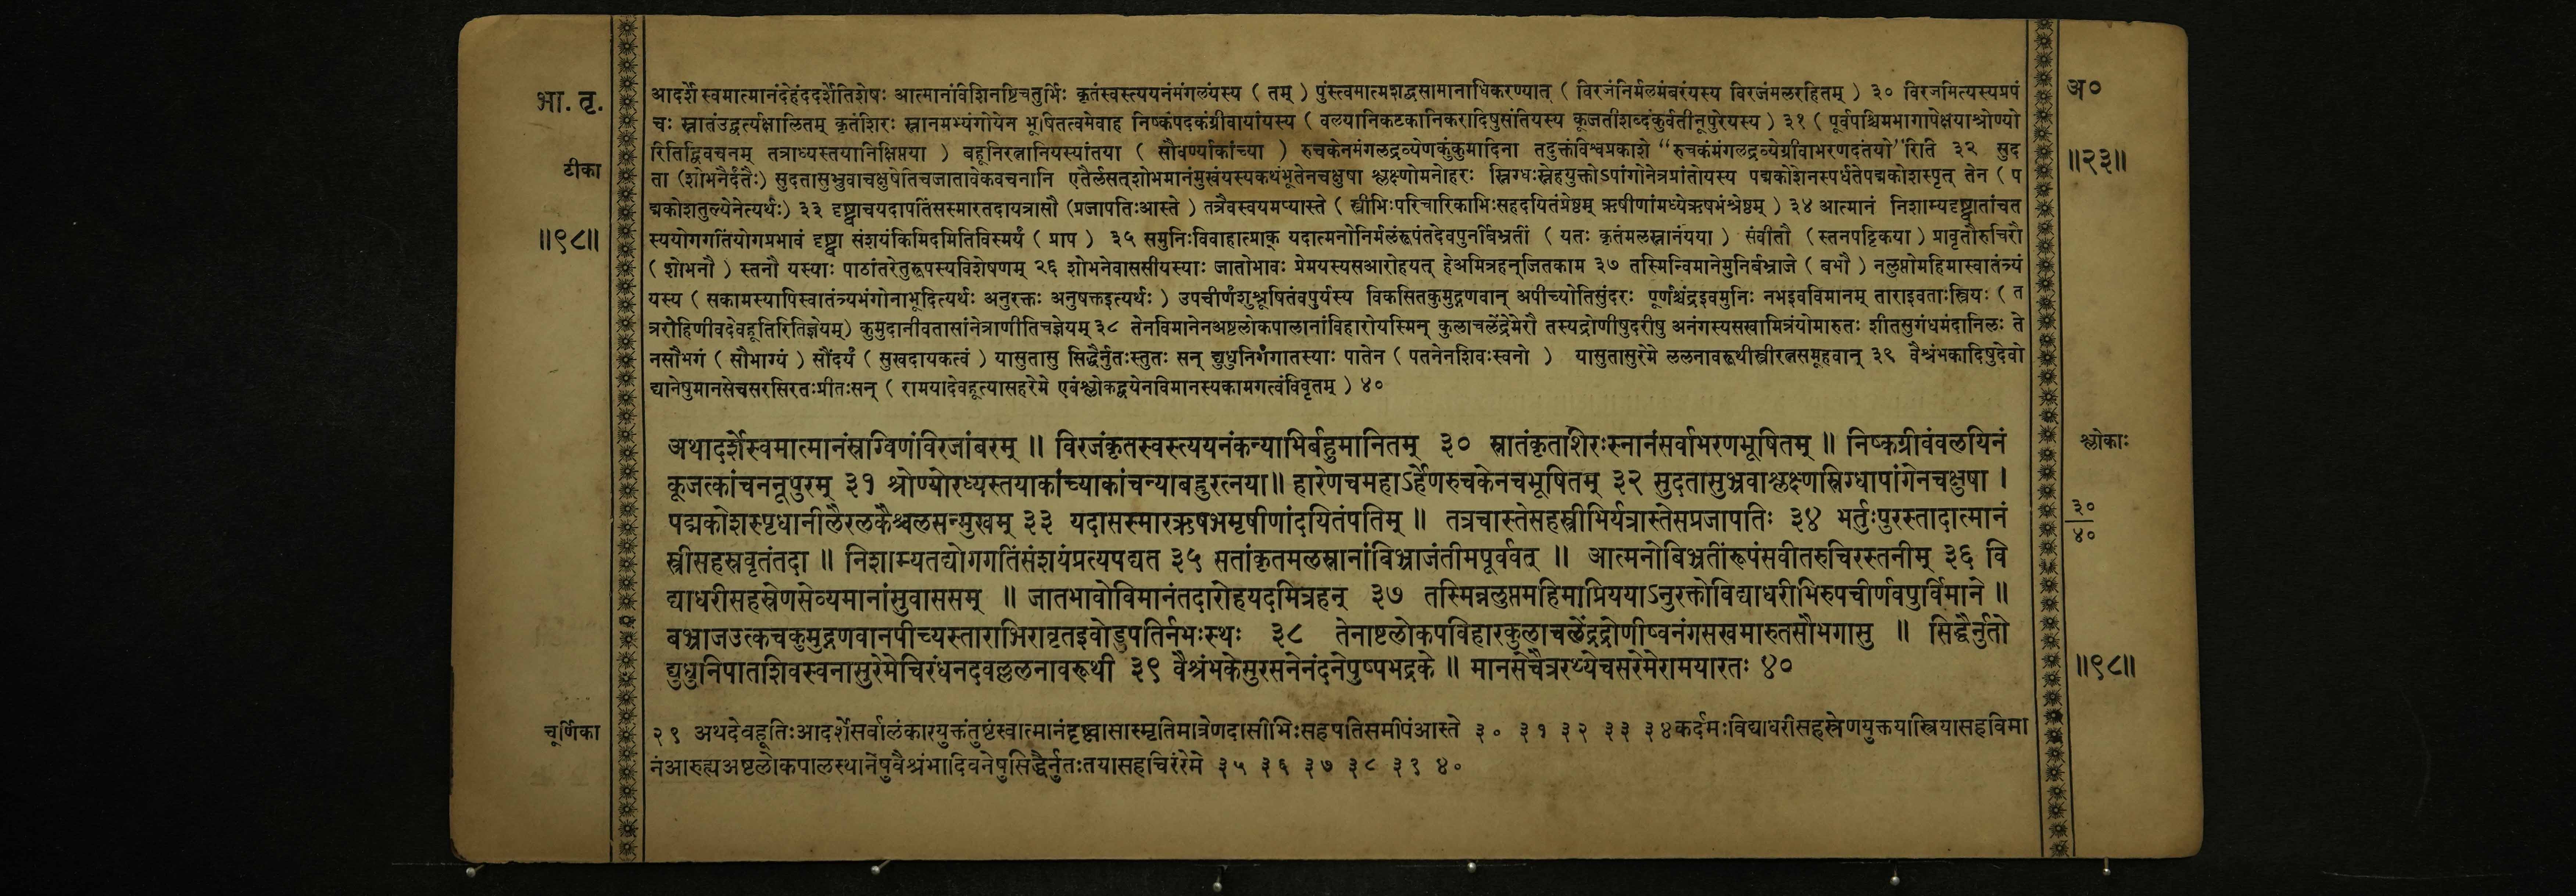 भा. तृ.
टीका
॥९८॥
आदर्शे स्वमात्मानंदेहंददर्शेतिशेषः आत्मानांविशिनष्टिचतुर्भिः कृतंस्वस्त्ययनंमंगलंयस्य ( तम् ) पुंस्त्वमात्मशद्वसामानाधिकरण्यात् ( विरजंनिर्मलमंबरंयस्य विरजंमलरहितम् ) ३० विरजमित्यस्यप्रपं
चः स्नातंउद्वर्त्यक्षालितम् कृतंशिरः स्नानमभ्यंगोयेन भूषितत्वमेवाह निष्कंपदकंग्रीवायांयस्य ( वलयानिकटकानिकरादिषुसंतियस्य कूजतीशब्दंकुर्वतीनूपुरेयस्य ) ३१ ( पूर्वपश्चिमभागापेक्षयाश्रोण्यो
रितिद्विवचनम् तत्राध्यस्तयानिक्षिप्तया ) बहूनिरत्नानियस्यांतया ( सौवर्ण्याकांच्या ) रुचकेनमंगलद्रव्येणकुंकुमादिना तदुक्तंविश्वप्रकाशे “रुचकंमंगलद्रव्येग्रीवाभरणदंतयो”रिति ३२ सुद
ता (शोभनैर्दंतैः) सुदतासुभ्रुवाचक्षुषेतिचजातावेकवचनानि एतैर्लसत्शोभमानंमुखंयस्यकथंभूतेनचक्षुषा श्लक्ष्णोमनोहरः स्निग्धःस्नेहयुक्तोऽपांगोनेत्रप्रांतोयस्य पद्मकोशेनस्पर्धतेपद्मकोशस्पृत् तेन ( प
द्मकोशतुल्येनेत्यर्थः) ३३ दृष्ट्वाचयदापतिंसस्मारतदायत्रासौ (प्रजापतिःआस्ते ) तत्रैवस्वयमप्यास्ते ( स्त्रीभिःपरिचारिकाभिःसहदयितंप्रेष्ठम् ऋषीणांमध्येऋषभंश्रेष्ठम् ) ३४ आत्मानं निशाम्यदृष्ट्वातांचत
स्ययोगगतिंयोगप्रभावं दृष्ट्वा संशयंकिमिदमितिविस्मयं ( प्राप ) ३५ समुनिःविवाहात्प्राक् यदात्मनोनिर्मलंरूपंतदेवपुनर्बिभ्रतीं ( यतः कृतंमलस्नानंयया ) संवीतौ (स्तनपट्टिकया ) प्रावृतौरुचिरौ
( शोभनौ ) स्तनौ यस्याः पाठांतरेतुरूपस्यविशेषणम् २६ शोभनेवाससीयस्याः जातोभावः प्रेमयस्यसआरोहयत् हेअमित्रहन्जितकाम ३७ तस्मिन्विमानेमुनिर्बभ्राजे ( बभौ ) नलुप्तोमहिमास्वातंत्र्यं
यस्य ( सकामस्यापिस्वातंत्र्यभंगोनाभूदित्यर्थः अनुरक्तः अनुषक्तइत्यर्थः ) उपचीर्णंशुश्रूषितंवपुर्यस्य विकसितकुमुद्गणवान् अपीच्योतिसुंदरः पूर्णश्चंद्रइवमुनिः नभइवविमानम् ताराइवताःस्त्रियः ( त
त्ररोहिणीवदेवहूतिरितिज्ञेयम्) कुमुदानीवतासांनेत्राणीतिचज्ञेयम् ३८ तेनविमानेनअष्टलोकपालानांविहारोयस्मिन् कुलाचलेंद्रेमेरौ तस्यद्रोणीषुदरीषु अनंगस्यसखामित्रंयोमारुतः शीतसुगंधमंदानिलः ते
नसौभगं ( सौभाग्यं ) सौंदर्यं ( सुखदायकत्वं ) यासुतासु सिद्धैर्नुतःस्तुतः सन् द्युधुनिर्गंगातस्याः पातेन ( पतनेनशिवःस्वनो ) यासुतासुरेमे ललनावरूथीस्त्रीरत्नसमूहवान् ३९ वैश्रंभकादिषुदेवो
द्यानेषुमानसेचसरसिरतःप्रीतःसन् ( रामयादेवहूत्यासहरेमे एवंश्लोकद्वयेनविमानस्यकामगत्वंविवृतम् ) ४०
अथादर्शेस्वमात्मानंस्रग्विणंविरजांबरम् ॥ विरजंकृतस्वस्त्ययनंकन्याभिर्बहुमानितम् ३० स्नातंकृतशिरःस्नानंसर्वाभरणभूषितम् ॥ निष्कग्रीवंवलयिनं
कूजत्कांचननूपुरम् ३१ श्रोण्योरध्यस्तयाकांच्याकांचन्याबहुरत्नया॥ हारेणचमहाऽर्हेणरुचकेनचभूषितम् ३२ सुदतासुभ्रुवाश्लक्ष्णस्निग्धापांगेनचक्षुषा ।
पद्मकोशस्पृधानीलैरलकैश्चलसन्मुखम् ३३ यदासस्मारऋषभमृषीणांदयितंपतिम् ॥ तत्रचास्तेसहस्त्रीभिर्यत्रास्तेसप्रजापतिः ३४ भर्तुःपुरस्तादात्मानं
स्त्रीसहस्रवृतंतदा ॥ निशाम्यतद्योगगतिंसंशयंप्रत्यपद्यत ३५ सतांकृतमलस्नानांविभ्राजंतीमपूर्ववत् ॥ आत्मनोबिभ्रतींरूपंसंवीतरुचिरस्तनीम् ३६ वि
द्याधरीसहस्रेणसेव्यमानांसुवाससम् ॥ जातभावोविमानंतदारोहयदमित्रहन् ३७ तस्मिन्नलुप्तमहिमाप्रिययाऽनुरक्तोविद्याधरीभिरुपचीर्णवपुर्विमाने ॥
बभ्राजउत्कचकुमुद्गणवानपीच्यस्ताराभिरावृतइवोडुपतिर्नभःस्थः ३८ तेनाष्टलोकपविहारकुलाचलेंद्रद्रोणीष्वनंगसखमारुतसौभगासु ॥ सिद्धैर्नुतो
द्युधुनिपातशिवस्वनासुरेमेचिरंधनदवल्ललनावरूथी ३९ वैश्रंभकेसुरसनेनंदनेपुष्पभद्रके ॥ मानसेचैत्ररथ्येचसरेमेरामयारतः ४०
चूर्णिका
२९ अथदेवहूतिःआदर्शेसर्वालंकारयुक्तंतुष्टंस्वात्मानंदृष्ट्वासास्मृतिमात्रेणदासीभिःसहपतिसमीपंआस्ते ३० ३१ ३२ ३३ ३४कर्दमःविद्याधरीसहस्रेणयुक्तयास्त्रियासहविमा
नंआरुह्यअष्टलोकपालस्थानेषुवैश्रंभादिवनेषुसिद्धैर्नुतःतयासहचिरंरेमे ३५ ३६ ३७ ३८ ३९ ४०
अ०
॥२३॥
श्लोकाः
३०
४०
॥९८॥